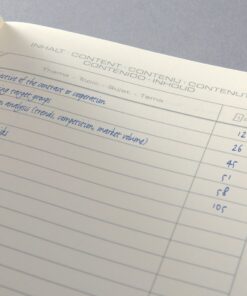 INHALT · CONTENT · CONTENU · CONTENUTO
CONTENIDO · INHOUD
Thema · Topic · Sujet · Tema
of the contract or cooperation 12
target groups 26
analysis (trends, competition, market volume) 45
51
58
105